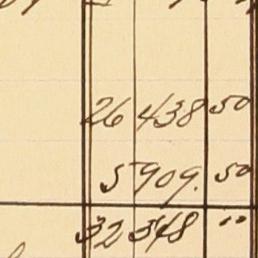 26 438 50
5 909. 50
32 348 "